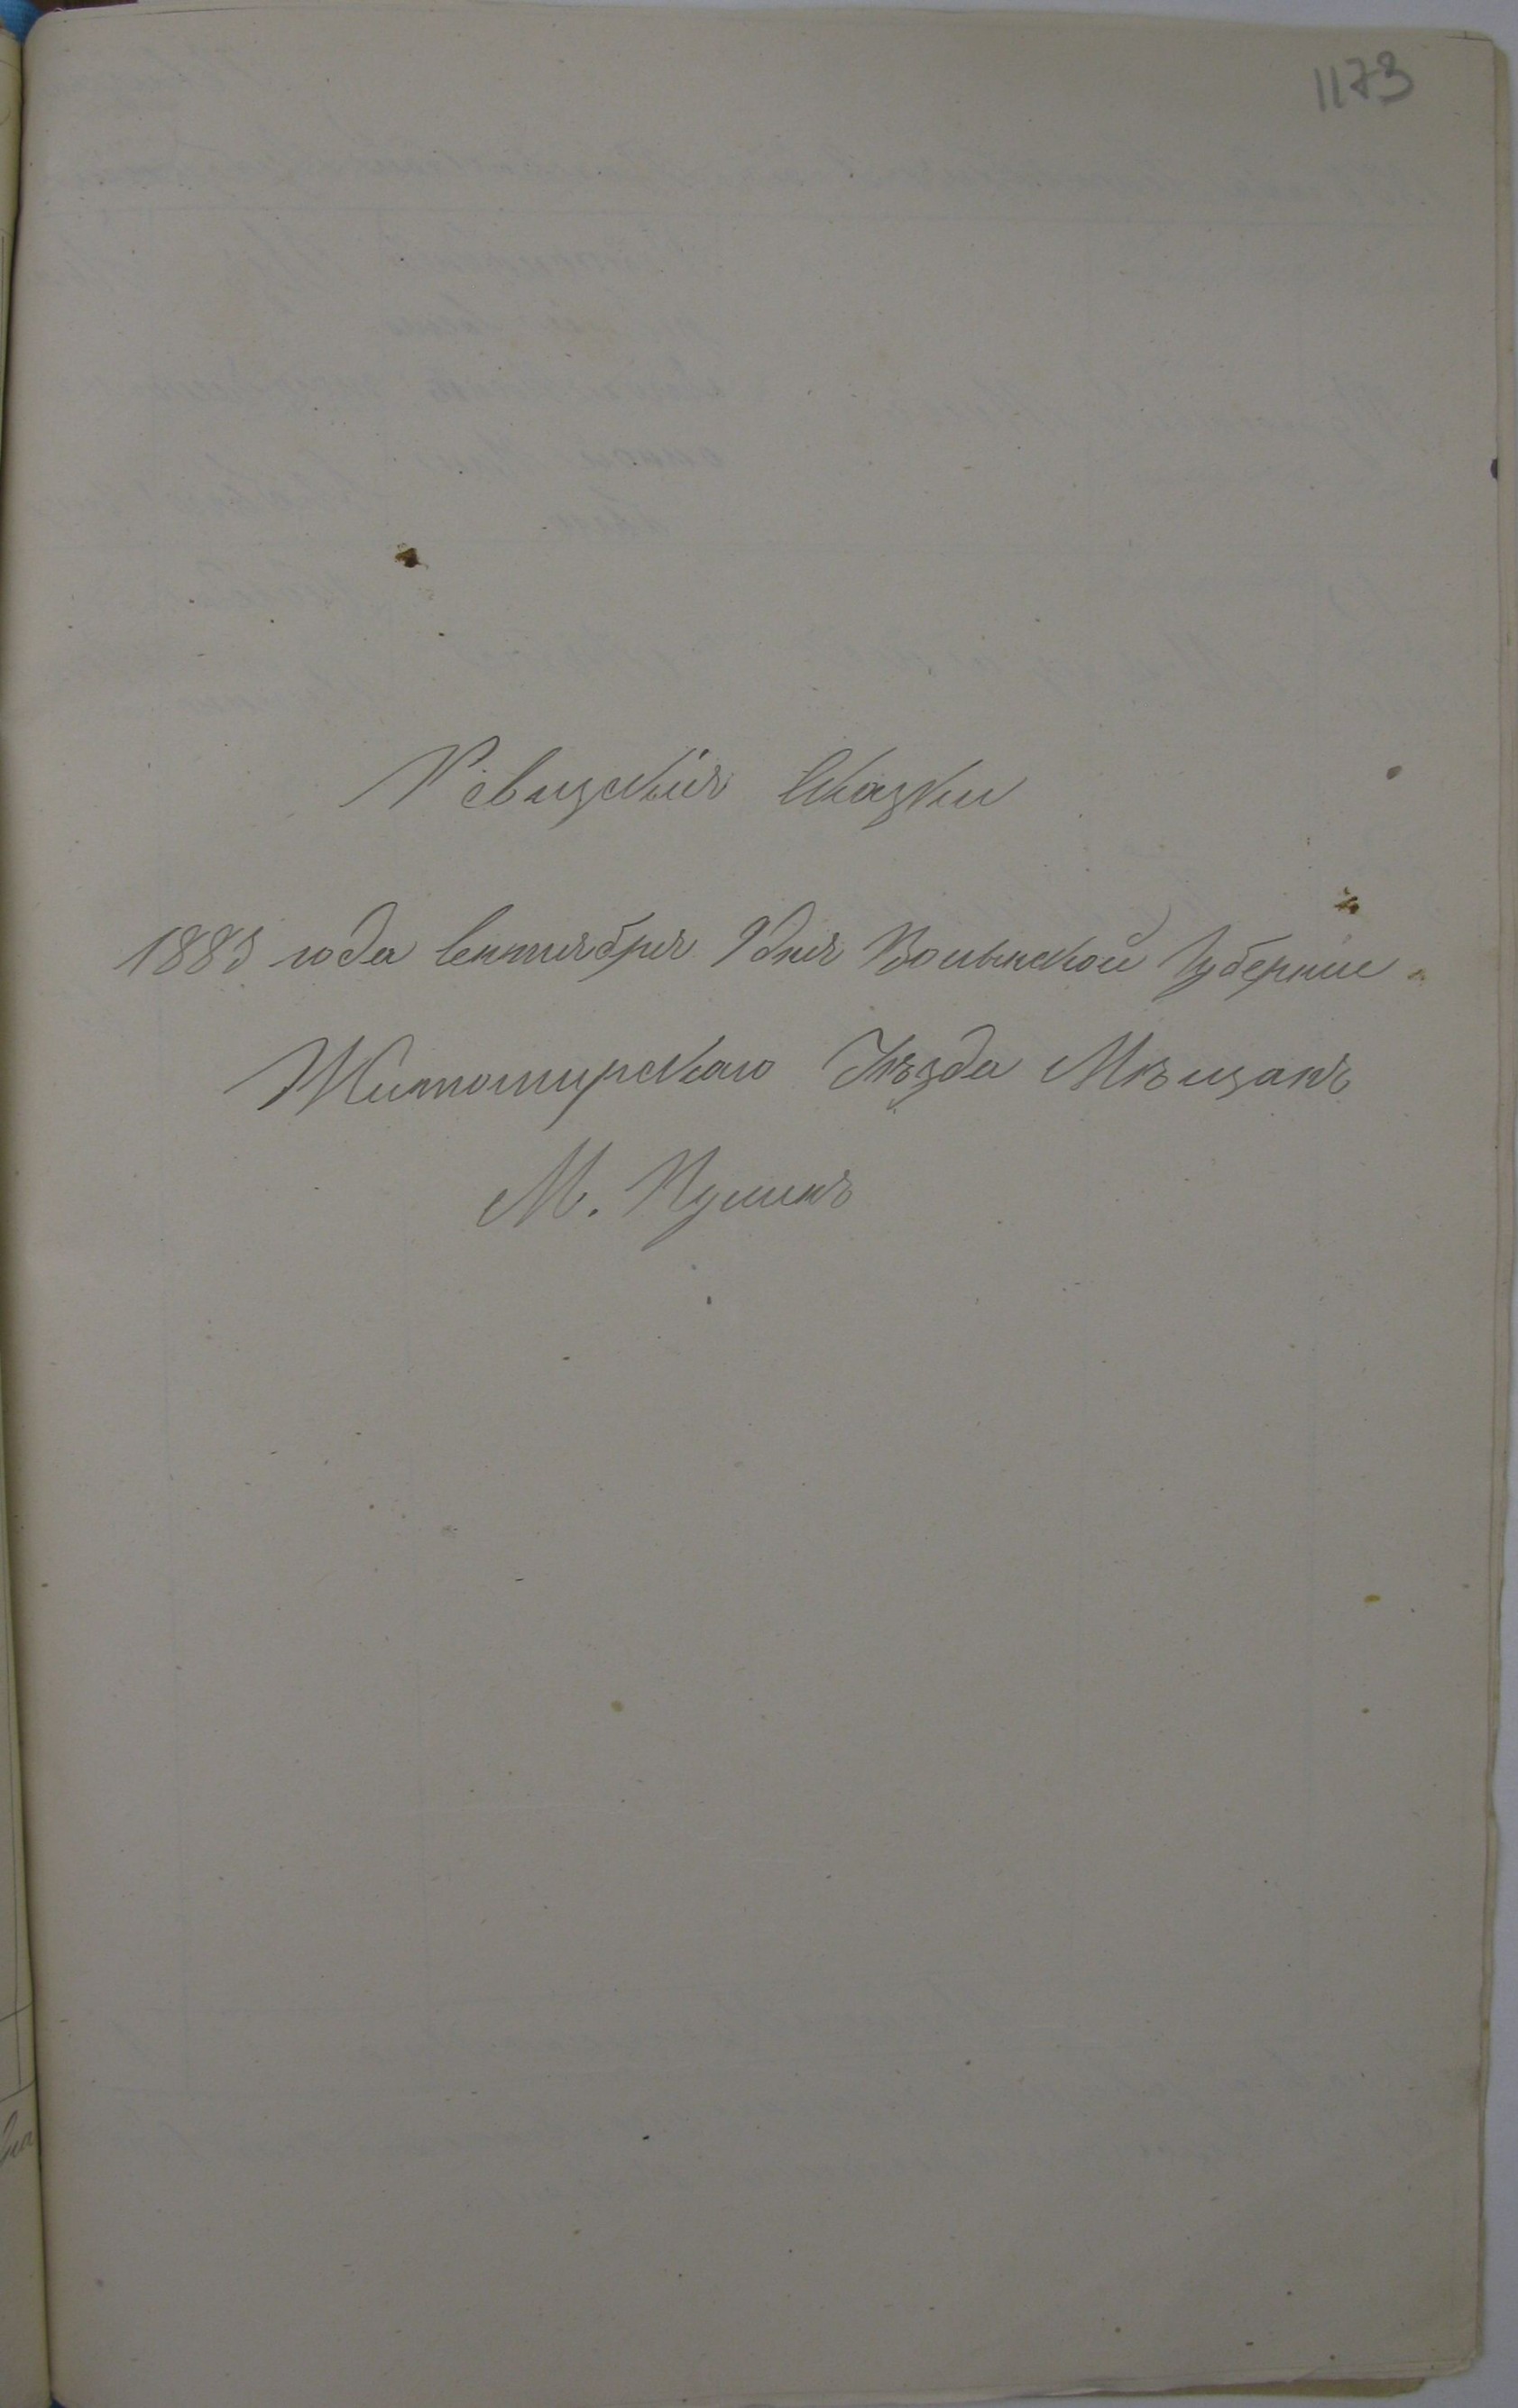 1173
Ревизскія Сказки
1883 года Сентября 9 дня Волынской Губерніи
Житомирскаго Уѣзда Мѣщанъ
М. Пулинъ